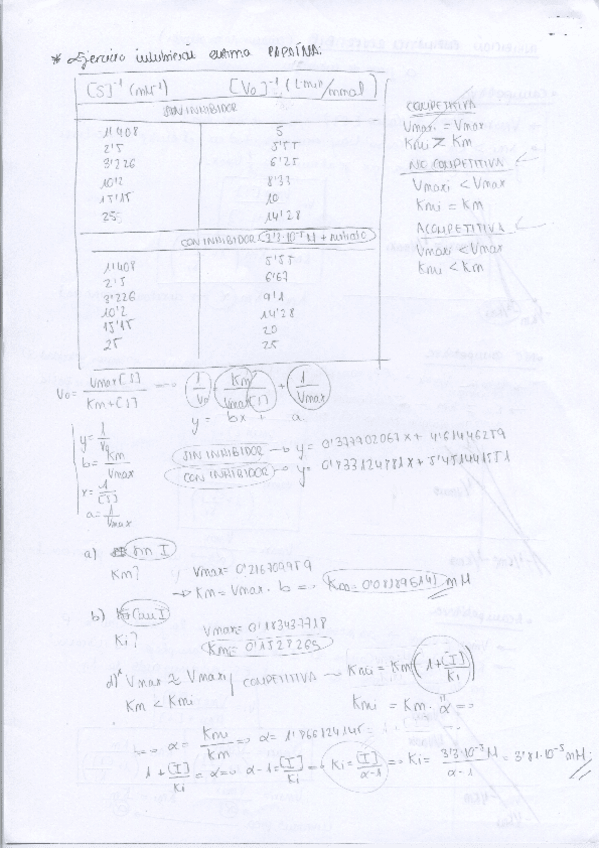 * Ejercicio inhibición enzima PAPAÍNA:
[S]⁻¹ (mM⁻¹) [V₀]⁻¹ (L·min/mmol)
SIN INHIBIDOR
1'1408 5
2'5 5'55
3'226 6'25
10'2 8'33
15'15 10
25 14'28
CON INHIBIDOR + sustrato
1'1408 5'55
2'5 6'67
3'226 9'1
10'2 14'28
15'15 20
25 25
COMPETITIVA
Vmaxi = Vmax
Kmi > Km
NO COMPETITIVA
Vmaxi < Vmax
Kmi = Km
ACOMPETITIVA
Vmaxi < Vmax
Kmi < Km
V₀ = Vmax [S] / Km + [S] 1/V₀ = Km / Vmax [S] + 1/Vmax
y = bx + a
y = 1/V₀
b = Km/Vmax
x = 1/[S]
a = 1/Vmax
SIN INHIBIDOR → y = 0'377902067x + 4'61446259
CON INHIBIDOR → y = 0'833124781x +
a) Sin I
Km? Vmax = 0'216709959
→ Km = Vmax · b => mM
b) Con I
Ki? Vmax =
Km = 0'1528265
Vmax ≈ Vmaxi COMPETITIVA → Kmi = Km (1 + [I]/Ki)
Km < Kmi Kmi = Km · α =>
=> α = Kmi/Km => α =
1 + [I]/Ki = α => α-1 = [I]/Ki => Ki = [I]/α-1 => Ki =